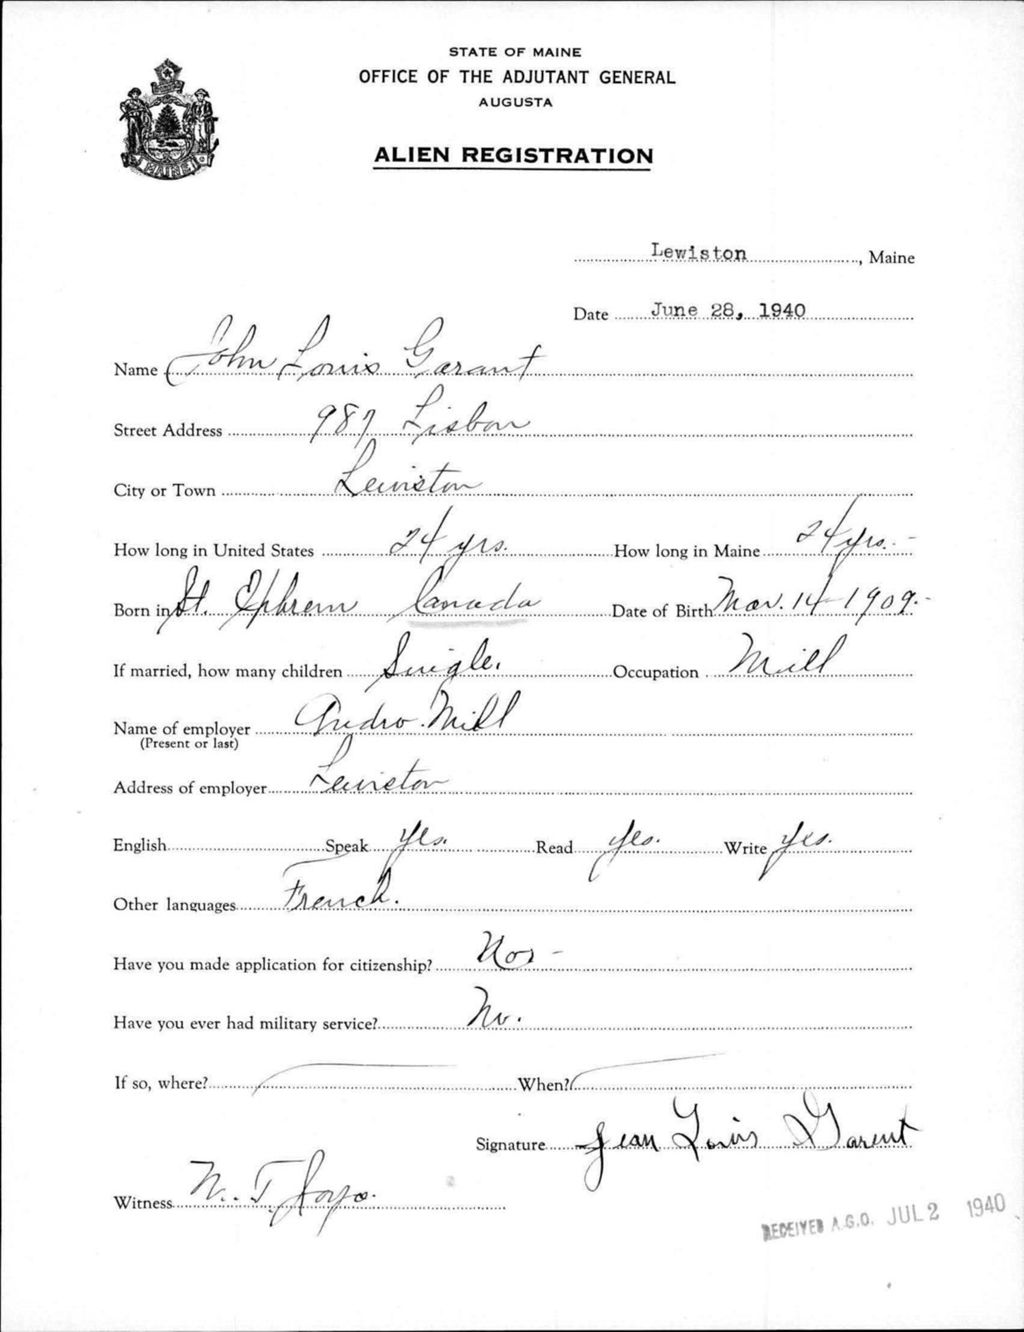 STATE OF MAINE
OFFICE OF THE ADJUTANT GENERAL
AUGUSTA
ALIEN REGISTRATION
MAINE
Lewiston, Maine
Date June 28, 1940
Name John Louis Garant
Street Address 987 Lisbon
City or Town Lewiston
How long in United States 24 yrs. How long in Maine 24 yrs.-
Born in St. Ephrem Canada Date of Birth Mar. 14-1909.-
If married, how many children Single. Occupation Mill
Name of employer Andro. Mill
(Present or last)
Address of employer Lewiston
English Speak Yes. Read Yes. Write Yes.
Other languages French.
Have you made application for citizenship? No -
Have you ever had military service? No.
If so, where? When?
Signature Jean Louis Garent
Witness N. T.
RECEIVED A.G.O. JUL 2 1940